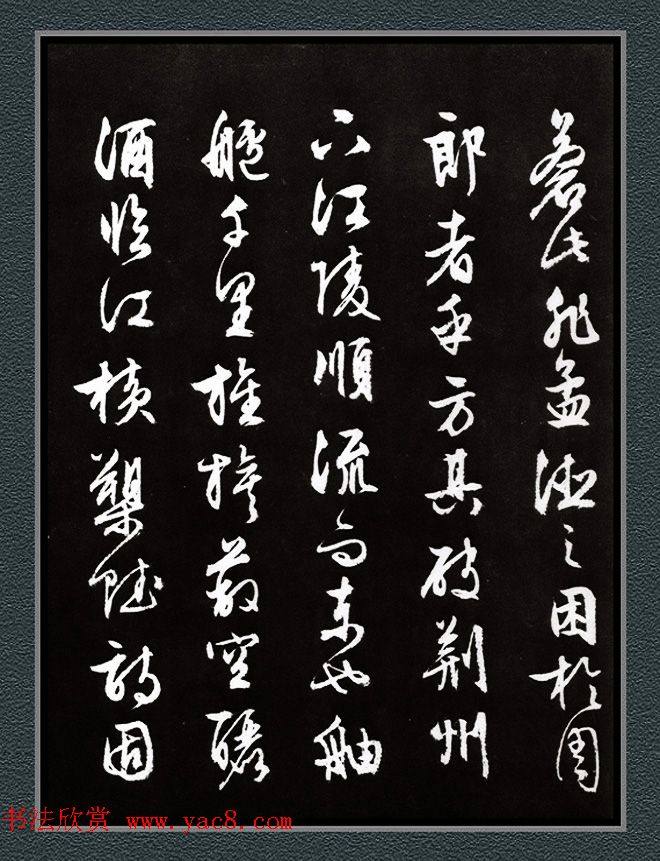 蒼此非孟德之困於周
郎者乎方其破荆州
下江陵順流而東也舳
艫千里旌旗蔽空釃
酒臨江橫槊賦詩固
书法欣赏 www.yac8.com